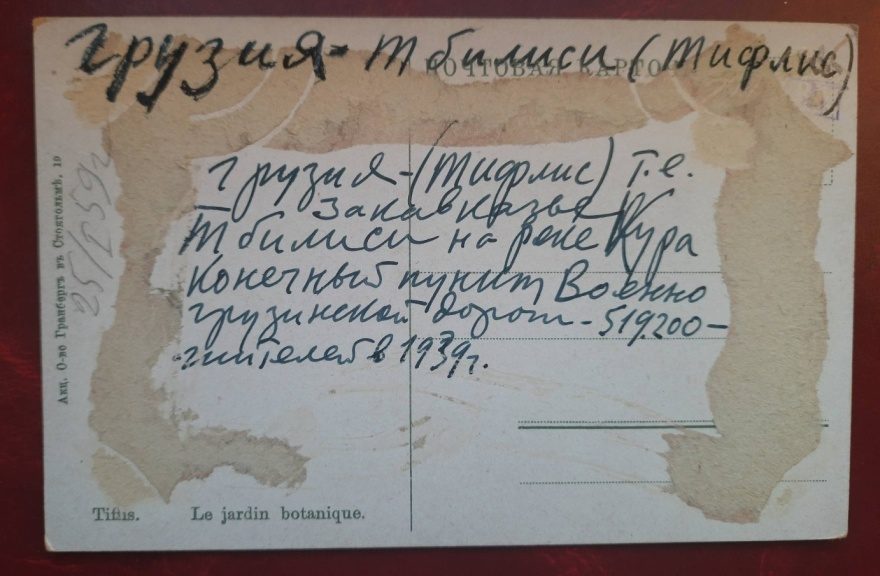 Грузия - Тбилиси (Тифлис)
ПОЧТОВАЯ КАРТО
Грузия - (Тифлис) т.е.
Закавказье
Тбилиси на реке Кура
Конечный пункт Военно
грузинской дорог - 519200 -
жителей в 1939 г.
Акц. О-во Гранбергъ въ Стокгольмѣ. 19
25/I 59 г
Tiflis. Le jardin botanique.